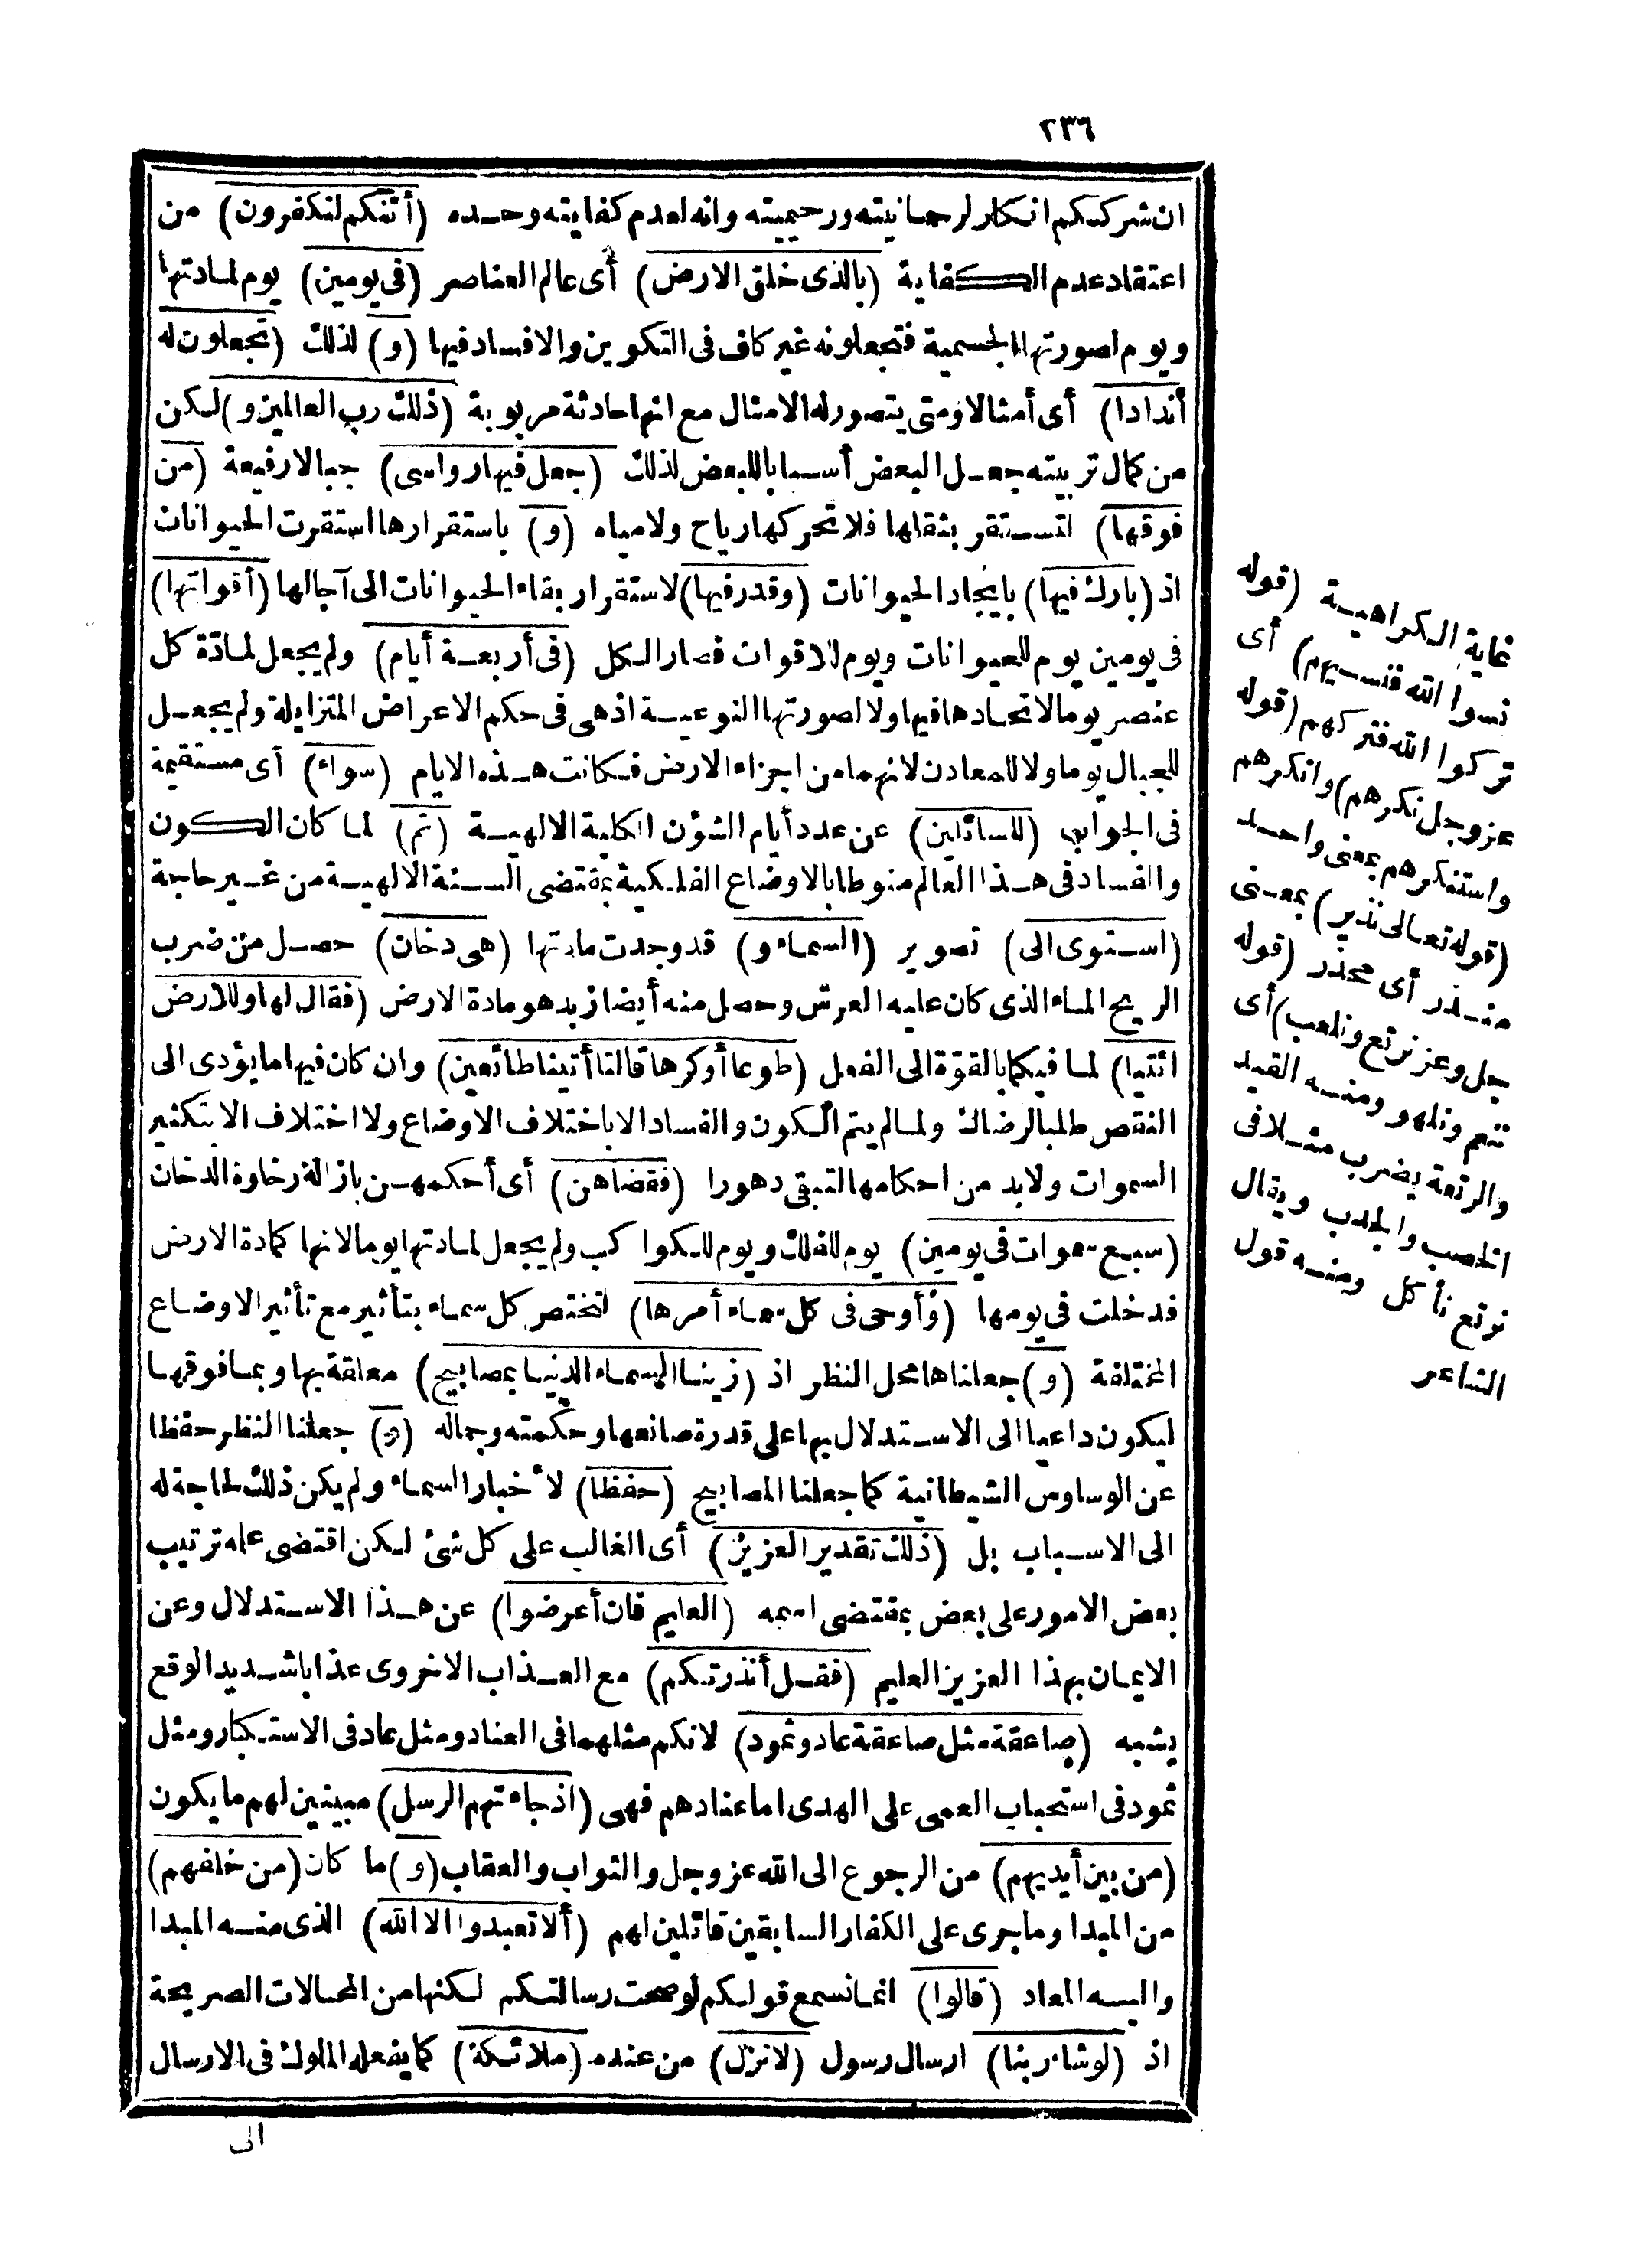 ٢٣٦
ان شرككم انكار لرحمانيته ورحيميته وانه لعدم كفايته وحده (أئنكم لتكفرون) من
اعتقاد عدم الكفاية (بالذى خلق الارض) أى عالم العناصر (فى يومين) يوم لمادتها
ويوم لصورتها الجسمية فتجعلونه غير كاف فى التكوين والافساد فيها (و) لذلك (تجعلون له
أندادا) أى أمثالا ومتى يتصور له الامثال مع انها حادثة مربوبة (ذلك رب العالمين و) لكن
من كمال تربيته جعل البعض أسبابا للبعض لذلك (جعل فيها رواسى) جبالا رفيعة (من
فوقها) لتستقر بثقلها فلا تحركها رياح ولا مياه (و) باستقرارها استقرت الحيوانات
اذ (بارك فيها) بايجاد الحيوانات (وقدر فيها) لاستقرار بقاء الحيوانات الى آجالها (أقواتها)
فى يومين يوم للحيوانات ويوم للاقوات فصار الكل (فى أربعة أيام) ولم يجعل لمادّة كل
عنصر يوما لاتحادها فيها ولا لصورتها النوعية اذ هى فى حكم الاعراض المتزايلة ولم يجعل
للجبال يوما ولا للمعادن لانهما من اجزاء الارض فكانت هذه الايام (سواء) أى مستقيمة
فى الجواب (للسائلين) عن عدد أيام الشؤن الكلية الالهية (ثم) لما كان الكون
والفساد فى هذا العالم منوطا بالاوضاع الفلكية بمقتضى السنة الالهية من غير حاجة
(استوى الى) تصوير (السماء و) قد وجدت مادتها (هى دخان) حصل من ضرب
الريح الماء الذى كان عليه العرش وحصل منه أيضا زبد هو مادة الارض (فقال لها وللارض
ائتيا) لما فيكما بالقوّة الى الفعل (طوعا أو كرها قالتا أتينا طائعين) وان كان فيها ما يؤدى الى
النقص طلبا لرضاك ولما لم يتم الكون والفساد الا باختلاف الاوضاع ولا اختلاف الا بتكثير
السموات ولا بد من احكامها لتبقى دهورا (فقضاهن) أى أحكمهن بازالة رخاوة الدخان
(سبع سموات فى يومين) يوم للفلك ويوم للكواكب ولم يجعل لمادتها يوما لانها كمادة الارض
فدخلت فى يومها (وأوحى فى كل سماء أمرها) لتختص كل سماء بتأثير مع تأثير الاوضاع
المختلفة (و) جعلناها محل النظر اذ (زينا السماء الدنيا بمصابيح) معلقة بها وبما فوقها
ليكون داعيا الى الاستدلال بها على قدرة صانعها وحكمته وجماله (و) جعلنا النظر حفظا
عن الوساوس الشيطانية كما جعلنا المصابيح (حفظا) لأخبار السماء ولم يكن ذلك لحاجة له
الى الاسباب بل (ذلك تقدير العزيز) أى الغالب على كل شئ لكن اقتضى علمه ترتيب
بعض الامور على بعض بمقتضى اسمه (العليم فان أعرضوا) عن هذا الاستدلال وعن
الايمان بهذا العزيز العليم (فقل أنذرتكم) مع العذاب الاخروى عذابا شديد الوقع
يشبه (صاعقة مثل صاعقة عاد وثمود) لانكم مثلهما فى العناد ومثل عاد فى الاستكبار ومثل
ثمود فى استحباب العمى على الهدى اما عنادهم فهى (اذ جاءتهم الرسل) مبينين لهم ما يكون
(من بين أيديهم) من الرجوع الى الله عز وجل والثواب والعقاب (و) ما كان (من خلفهم)
من المبدا وما جرى على الكفار السابقين قائلين لهم (ألا تعبدوا الا الله) الذى منه المبدا
واليه المعاد (قالوا) انما نسمع قولكم لو صحت رسالتكم لكنها من المحالات الصريحة
اذ (لو شاء ربنا) ارسال رسول (لانزل) من عنده (ملائكة) كما يفعله الملوك فى الارسال
الى
غاية الكراهية (قوله
نسوا الله فنسيهم) أى
تركوا الله فتركهم (قوله
عز وجل نكرهم) وانكرهم
واستنكرهم بمعنى واحد
(قوله تعالى نذير) بمعنى
منذر أى محذر (قوله
جل وعز نرتع ونلعب) أى
ننعم ونلهو ومنه القيد
والرتعة يضرب مثلا فى
الخصب والجدب ويقال
نرتع نأكل ومنه قول
الشاعر